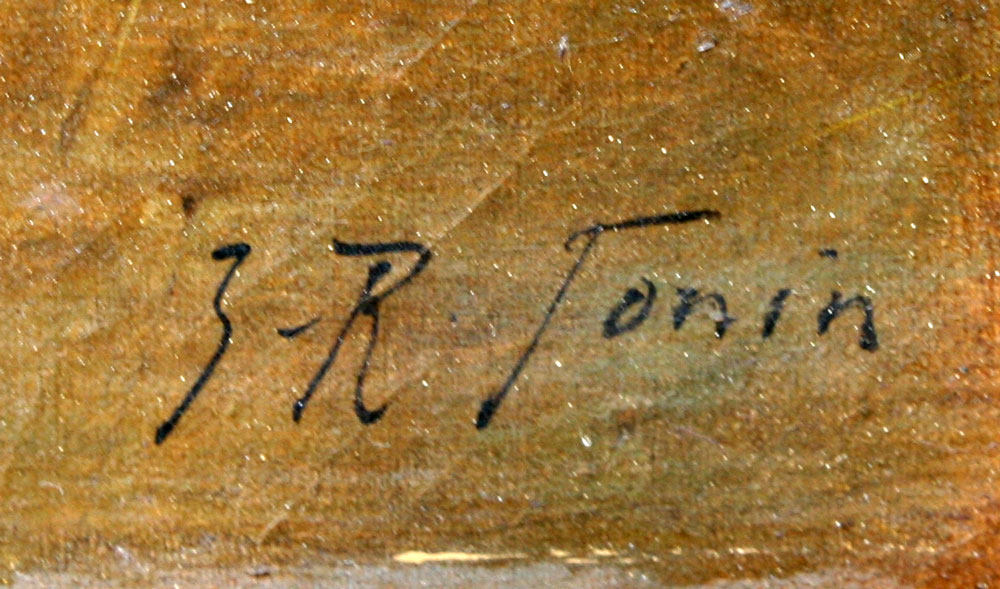 J-R. Tonin